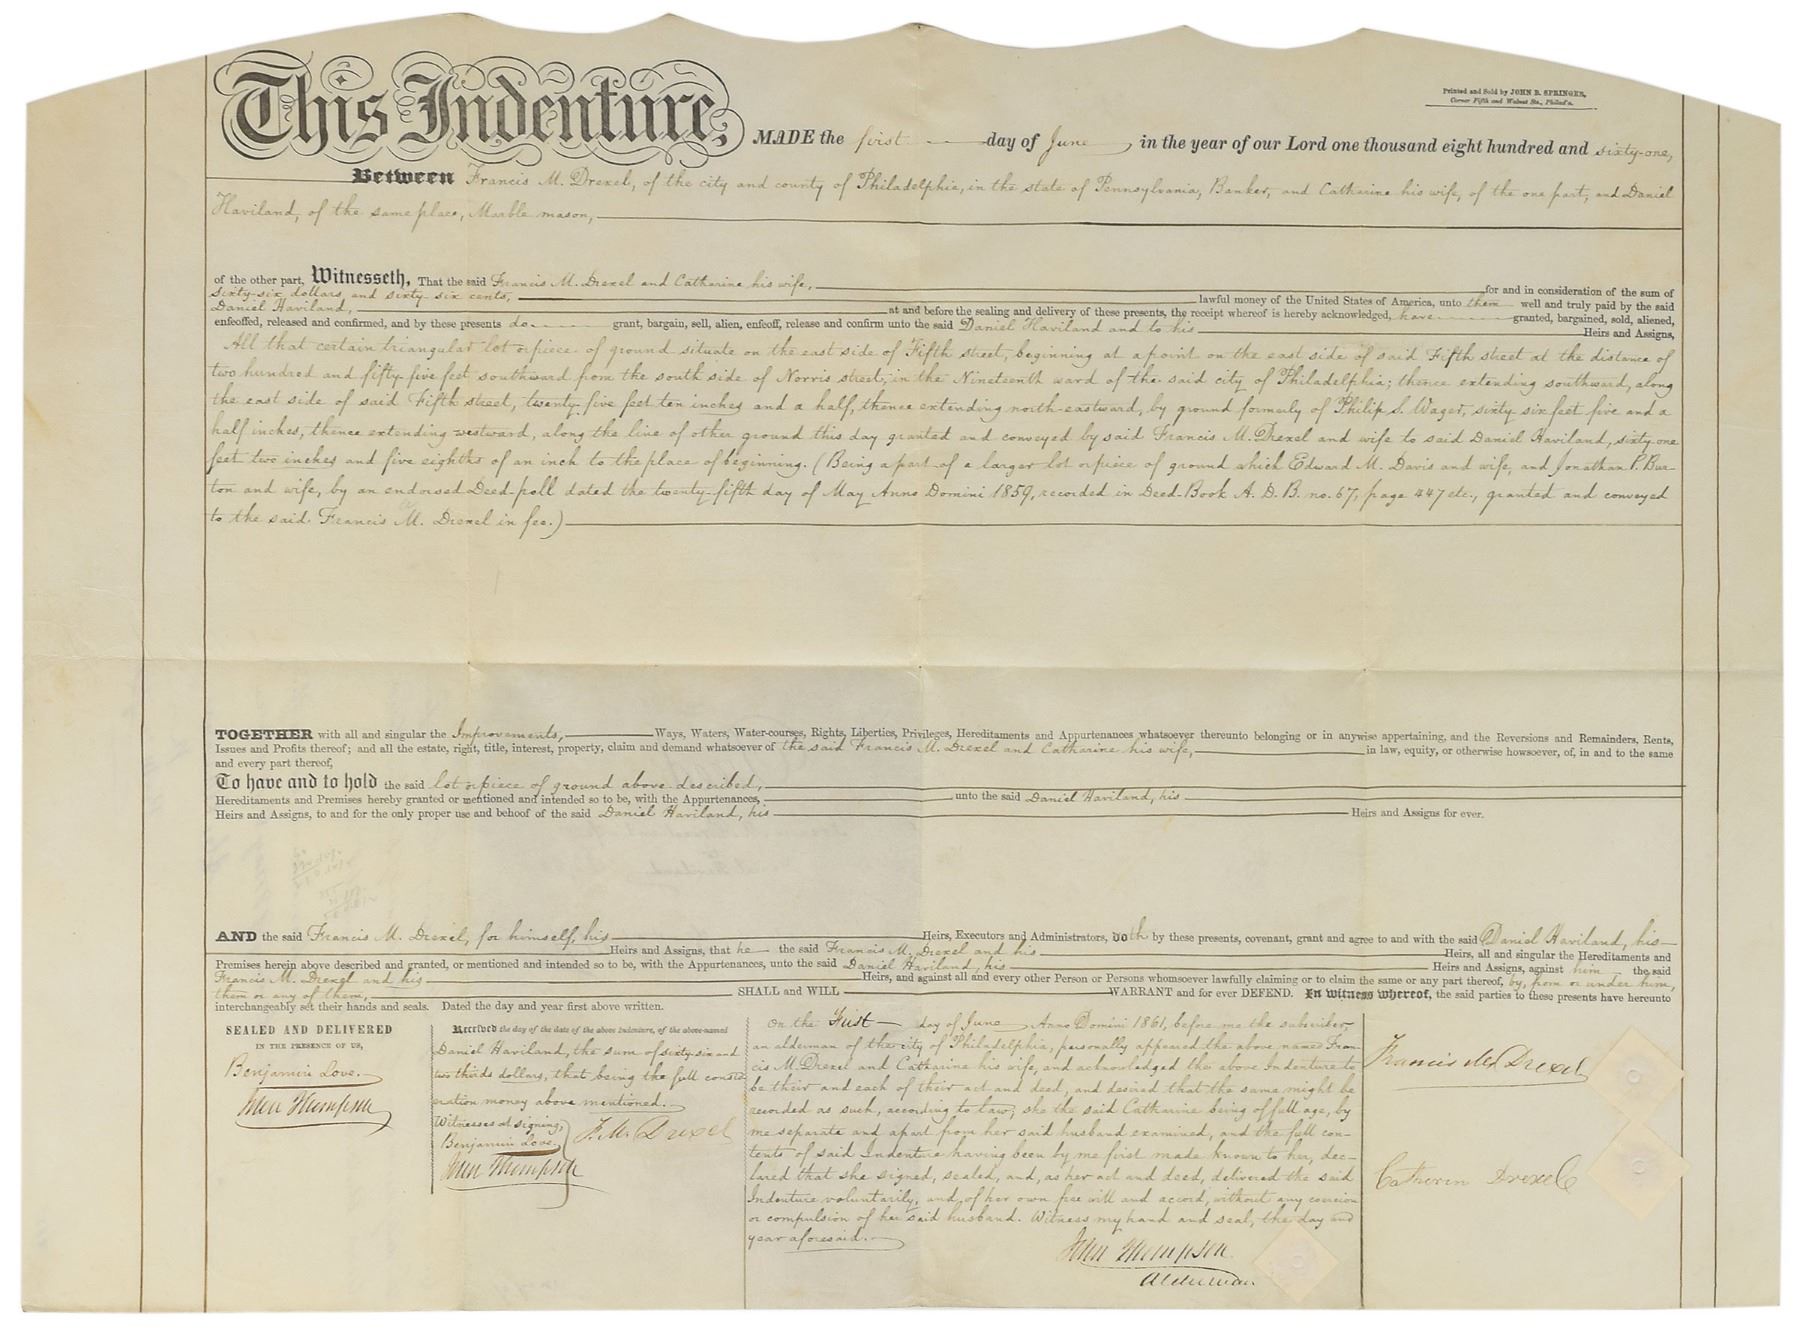 This Indenture,
Printed and Sold by JOHN B. SPRINGER,
Corner Fifth and Walnut Sts., Philad'a.
MADE the first day of June in the year of our Lord one thousand eight hundred and sixty-one,
Between Francis M. Drexel, of the city and county of Philadelphia, in the state of Pennsylvania, Banker, and Catharine his wife, of the one part, and Daniel
Haviland, of the same place, Marble mason,
of the other part, Witnesseth, That the said Francis M. Drexel and Catharine his wife, for and in consideration of the sum of
sixty-six dollars and sixty-six cents, lawful money of the United States of America, unto them well and truly paid by the said
Daniel Haviland, at and before the sealing and delivery of these presents, the receipt whereof is hereby acknowledged, have granted, bargained, sold, aliened,
enfeoffed, released and confirmed, and by these presents do grant, bargain, sell, alien, enfeoff, release and confirm unto the said Daniel Haviland and to his Heirs and Assigns,
All that certain triangular lot or piece of ground situate on the east side of Fifth street, beginning at a point on the east side of said Fifth street at the distance of
two hundred and fifty-five feet southward from the south side of Norris street, in the Nineteenth ward of the said city of Philadelphia; thence extending southward, along
the east side of said Fifth street, twenty-five feet ten inches and a half, thence extending north-eastward, by ground formerly of Philip S. Wager, sixty six feet five and a
half inches, thence extending westward, along the line of other ground this day granted and conveyed by said Francis M. Drexel and wife to said Daniel Haviland, sixty-one
feet two inches and five eighths of an inch to the place of beginning. (Being a part of a larger lot or piece of ground which Edward M. Davis and wife, and Jonathan P. Bur-
ton and wife, by an endorsed Deed-poll dated the twenty-fifth day of May Anno Domini 1859, recorded in Deed-Book A. D. B. no. 67, page 447 etc., granted and conveyed
to the said Francis M. Drexel in fee.)
TOGETHER with all and singular the Improvements, Ways, Waters, Water-courses, Rights, Liberties, Privileges, Hereditaments and Appurtenances whatsoever thereunto belonging or in anywise appertaining, and the Reversions and Remainders, Rents,
Issues and Profits thereof; and all the estate, right, title, interest, property, claim and demand whatsoever of the said Francis M. Drexel and Catharine his wife, in law, equity, or otherwise howsoever, of, in and to the same
and every part thereof,
To have and to hold the said lot or piece of ground above described,
Hereditaments and Premises hereby granted or mentioned and intended so to be, with the Appurtenances, unto the said Daniel Haviland, his
Heirs and Assigns, to and for the only proper use and behoof of the said Daniel Haviland, his Heirs and Assigns for ever.
AND the said Francis M. Drexel, for himself, his Heirs, Executors and Administrators, doth by these presents, covenant, grant and agree to and with the said Daniel Haviland, his
Heirs and Assigns, that he the said Francis M. Drexel and his Heirs, all and singular the Hereditaments and
Premises herein above described and granted, or mentioned and intended so to be, with the Appurtenances, unto the said Daniel Haviland, his Heirs and Assigns, against him the said
Francis M. Drexel and his Heirs, and against all and every other Person or Persons whomsoever lawfully claiming or to claim the same or any part thereof, by, from or under him,
them or any of them, SHALL and WILL WARRANT and for ever DEFEND. In witness whereof, the said parties to these presents have hereunto
interchangeably set their hands and seals. Dated the day and year first above written.
SEALED AND DELIVERED
IN THE PRESENCE OF US,
Benjamin Love.
John Thompson
Received the day of the date of the above Indenture, of the above-named
Daniel Haviland, the sum of sixty-six and
two thirds dollars, that being the full consid-
eration money above mentioned.
Witnesses at signing,
Benjamin Love
John Thompson
F. M. Drexel
On the First day of June Anno Domini 1861, before me the subscriber,
an alderman of the city of Philadelphia, personally appeared the above named Fran-
cis M. Drexel and Catharine his wife, and acknowledged the above Indenture to
be their and each of their act and deed, and desired that the same might be
recorded as such, according to law; she the said Catharine being of full age, by
me separate and apart from her said husband examined, and the full con-
tents of said Indenture having been by me first made known to her, dec-
lared that she signed, sealed, and, as her act and deed, delivered the said
Indenture voluntarily, and, of her own free will and accord, without any coercion
or compulsion of her said husband. Witness my hand and seal, the day and
year aforesaid.
John Thompson
Alderman
Francis M Drexel
Catherin Drexel